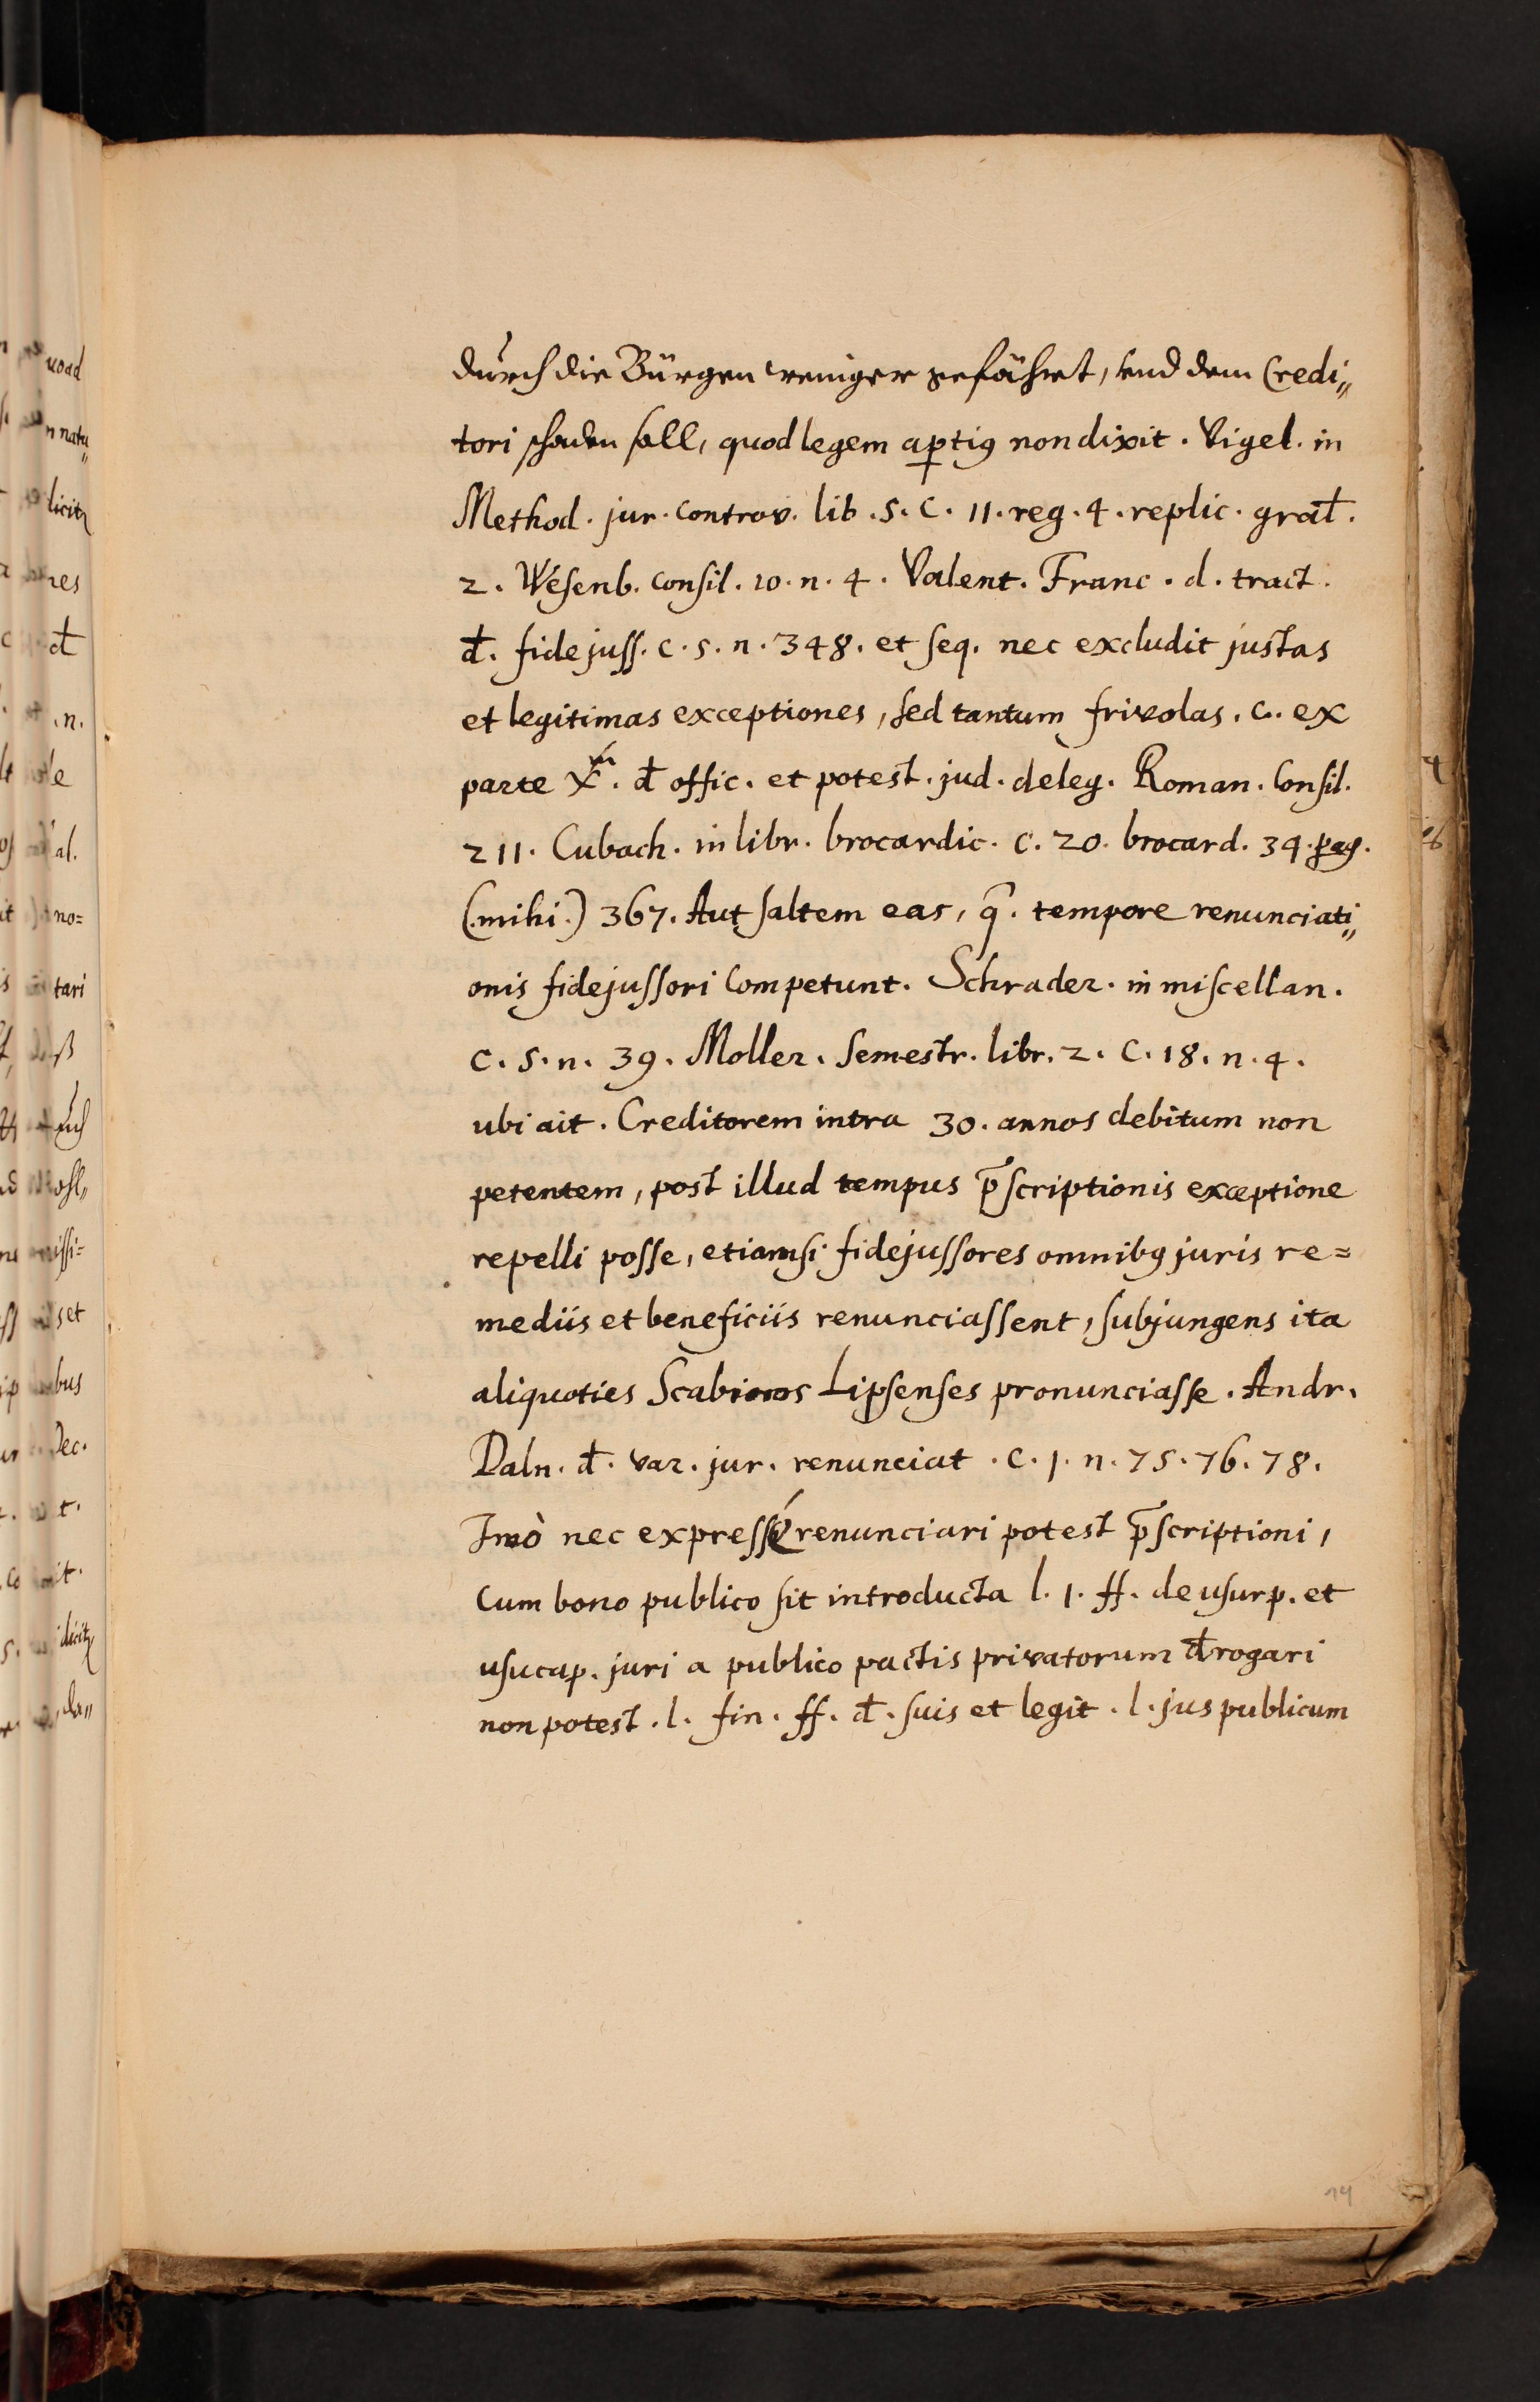 durch die Bürgen weniger gefährt, vnd dem Credi„
tori schaden soll, quod legem ap̱tiꝯ non dixit. Vigel. in
Method. jur. controv. lib. 5. C. 11. reg. 4. replic. grat̄.
2. Wesenb. consil. 10. n. 4. Valent. Franc. d. tract.
đ. fidejuss. c. 5. n. 348. et seq. nec excludit justas
et legitimas exceptiones, sed tantum frivolas. c. ex
parte đ offic. et potest. jud. deleg. Roman. Consil.
211. Cubach. in libr. brocardic. c. 20. brocard. 34. pag.
(mihi.) 367. Aut saltem eas, q̄. tempore renunciati„
onis fidejussori competunt. Schrader. in miscellan.
c. 5. n. 39. Moller. Semestr. libr. 2. C. 18. n. 4.
ubi ait. Creditorem intra 30. annos debitum non
petentem, post illud tempus p̄scriptionis exceptione
repelli posse, etiamsi fidejussores omnibꝯ juris re=
mediis et beneficiis renunciassent, subjungens ita
aliquoties Scabinos Lipsenses pronunciasse. Andr.
Daln. đ. var. jur. renunciat. c. 1. n. 75. 76. 78.
Imò nec expressé renunciari potest p̄scriptioni,
Cum bono publico sit introducta l. 1. ff. de usurp. et
usucap. juri a publico pactis privatorum đrogari
non potest. l. fin. ff. đ. suis et legit. l. jus publicum
14